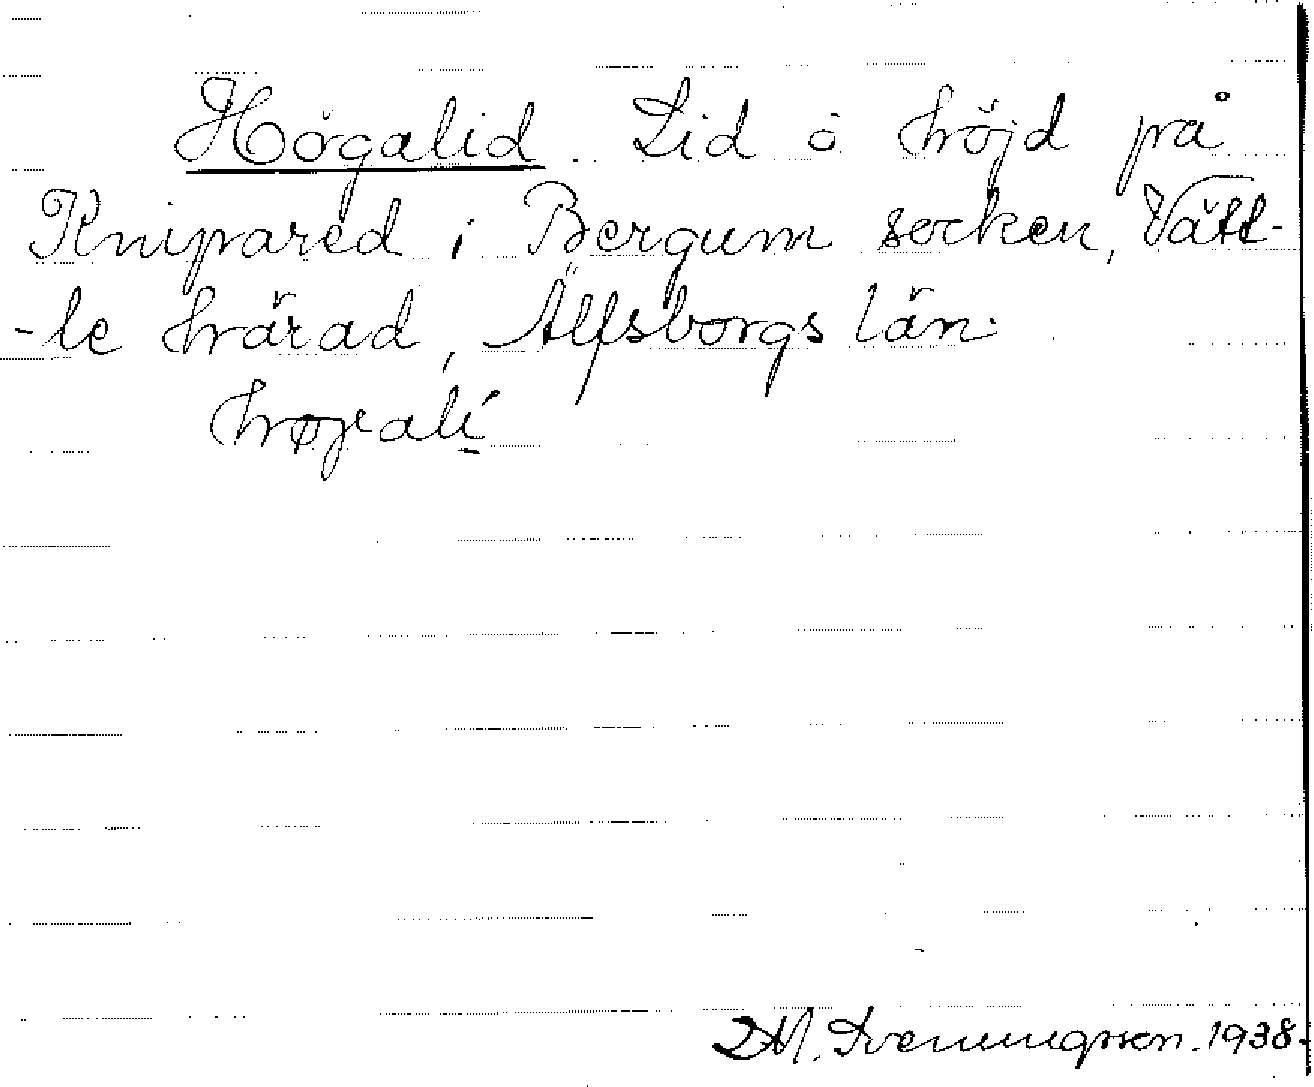 Högalid. Lid o höjd på
Knipared i Bergum socken, Vätt-
-le härad, Älfsborgs län.
høgali
Sveningsson. 1938.